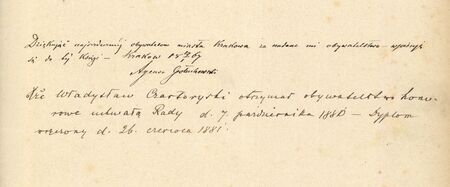 Dziękując najrówniej obywatelom miasta Krakowa za nadane mi obywatelstwo – wpisuję
się do tej Księgi – Kraków 67
Agenor Gołuchowski
Xże Władysław Czartoryski otrzymał obywatelstwo hono-
rowe uchwałą Rady d. 7. października 1880 – Dyplom
wręczony d. 26. czerwca 1881.